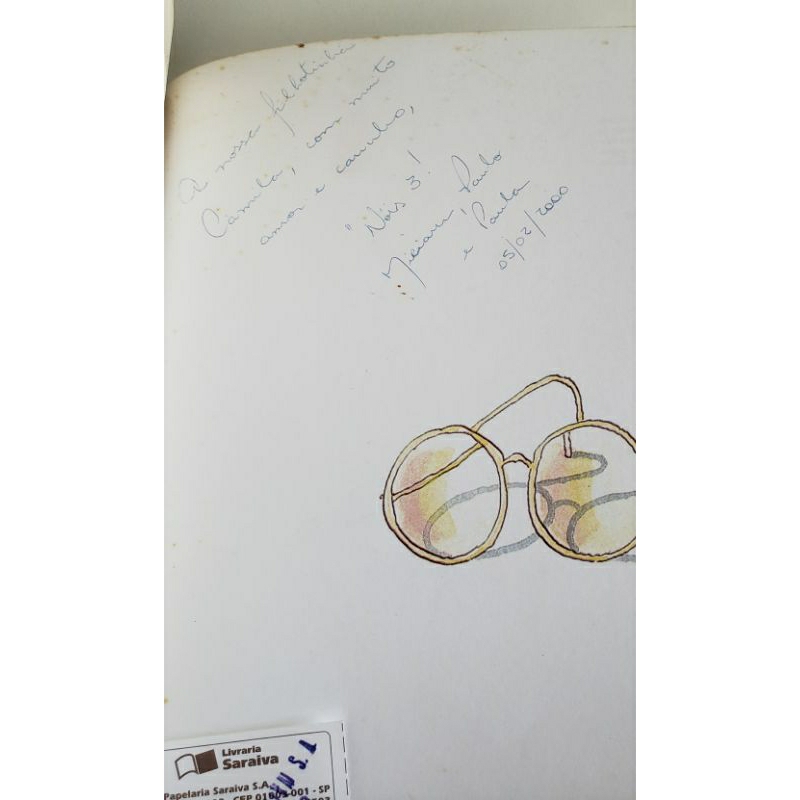 A nossa filhotinha
Camila, com muito
amor e carinho,
"Nóis 3!
Miriam, Paulo
e Paula
05/02/2000
Livraria
Saraiva
Papelaria Saraiva S.A.
CEP 01001-001 - SP